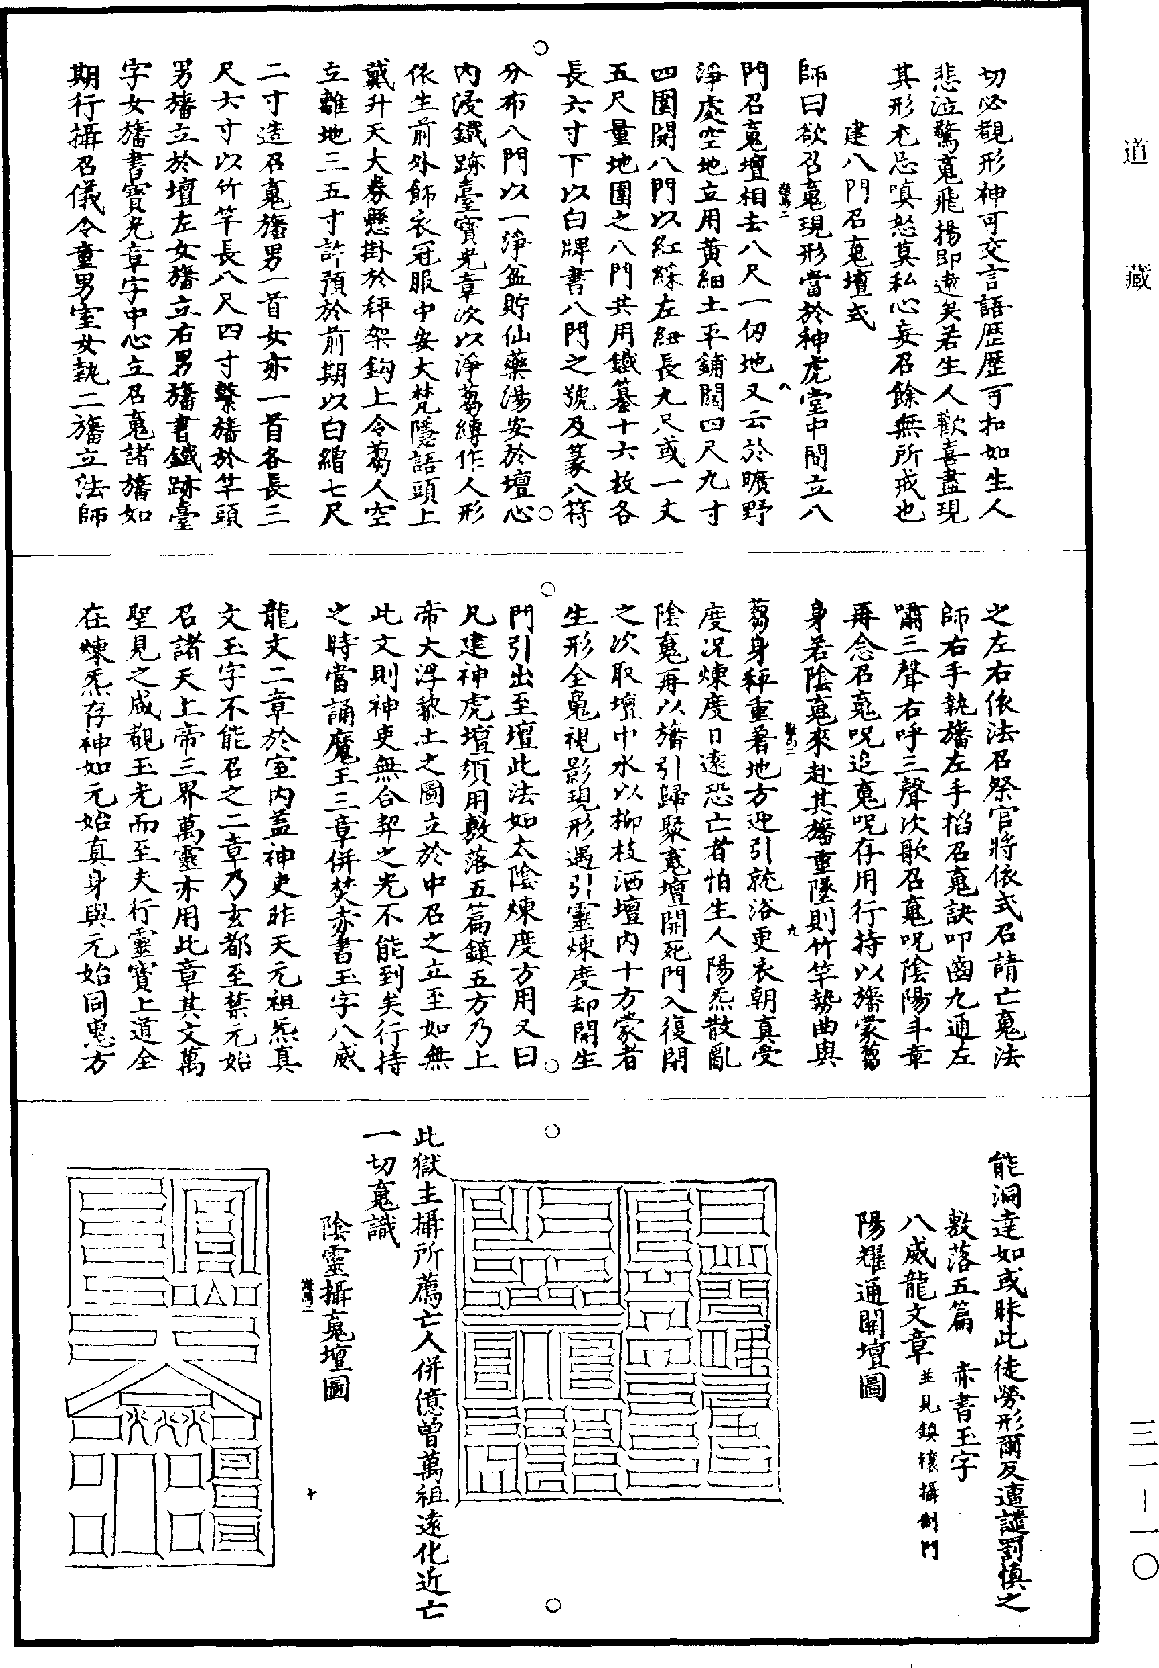 切必觀形神可交言語歷歷可扣如生人
悲泣驚䰟飛揚即遠矣若生人歡喜盡現
其形尤忌嗔怒莫私心妄召餘無所戒也
建八門召䰟壇式
師曰欲召䰟現形當於神虎堂中間立八
門召䰟壇相去八尺一仞地又云於曠野
淨處空地立用黃細土平鋪闊四尺九寸
四圍開八門以紅綵左紐長九尺或一丈
五尺量地圍之八門共用鐵纂十六枚各
長六寸下以白牌書八門之號及篆八符
分布八門以一淨盆貯仙藥湯安於壇心
內浸鐵跡臺寶光章次以淨蒭縛作人形
依生前外飾衣冠服中安大梵隱語頭上
戴升天大券懸掛於秤架鈎上令蒭人空
立離地三五寸許預於前期以白絹七尺
二寸造召䰟旛男一首女亦一首各長三
尺六寸以竹竿長八尺四寸繫旛於竿頭
男旛立於壇左女旛立右男旛書鐵跡臺
字女旛書寶光章字中心立召䰟諸旛如
期行攝召儀令童男室女執二旛立法師
之左右依法召祭官將依式召請亡䰟法
師右手執旛左手掐召䰟訣叩齒九通左
嘯三聲右呼三聲次歌召䰟呪陰陽斗章
再念召䰟呪追䰟呪存用行持以旛蒙蒭
身若陰䰟來赴其旛重墜則竹竿勢曲與
蒭身秤重著地方迎引就浴更衣朝真受
度況煉度日遠恐亡者怕生人陽炁散亂
陰䰟再以旛引歸聚䰟壇開死門入復閉
之次取壇中水以柳枝洒壇內十方蒙者
生形全䰟視影現形遇引靈煉度却開生
門引出至壇此法如太陰煉度方用又曰
凡建神虎壇須用敷落五篇鎮五方乃上
帝大浮黎土之圖立於中召之立至如無
此文則神吏無合契之光不能到矣行持
之時當誦魔王三章併焚赤書玉字八威
龍文二章於室內蓋神吏非天元祖炁真
文玉字不能召之二章乃玄都至禁元始
召諸天上帝三界萬靈亦用此章其文萬
聖見之咸覩玉光而至夫行靈寶上道全
在煉炁存神如元始真身與元始同䰟方
能洞達如或昧此徒勞形爾反遭譴罰慎之
敷落五篇　赤書玉字
八威龍文章　並見鎮禳攝制門
陽耀通關壇圖
此獄主攝所薦亡人併億曾萬祖遠化近亡
一切䰟識
陰靈攝䰟壇圖
道　藏
三一－一〇